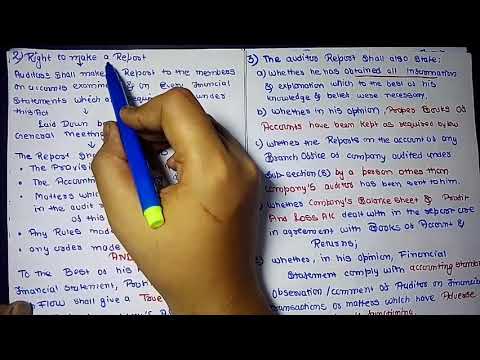 2) Right to make a Report
Auditors Shall make Report to the members
on accounts examin & on Every Financial
Statements which a under
this Act
Laid Down
General Meeting
The Report Sha
• The Provisi
• The Accountin
• Matters which
in the audit r
of this
• Any Rules made
• any order made
AND
To the Best of his
Financial statement, Prof
FLOW shall give a True
3) The auditor Report Shall also State:
a) Whether he has obtained all Information
& explanation which to the best of his
knowledge & belief were necessary.
b) Whether in his opinion, Proper Books of
Accounts have been kept as required by law
c) whether the Reports on the account of any
Branch Office of Company audited under
Sub-section (8) by a person other than
Company's auditor has been sent to him.
whether Company's Balance Sheet & Profit
And Loss A/c dealt with in the report are
in agreement with Books of Account &
Returns;
whether, in his opinion, Financial
Statement comply with accounting standar
Observation/comment of Auditor on Financial
transactions or matters which have Adverse
functioning